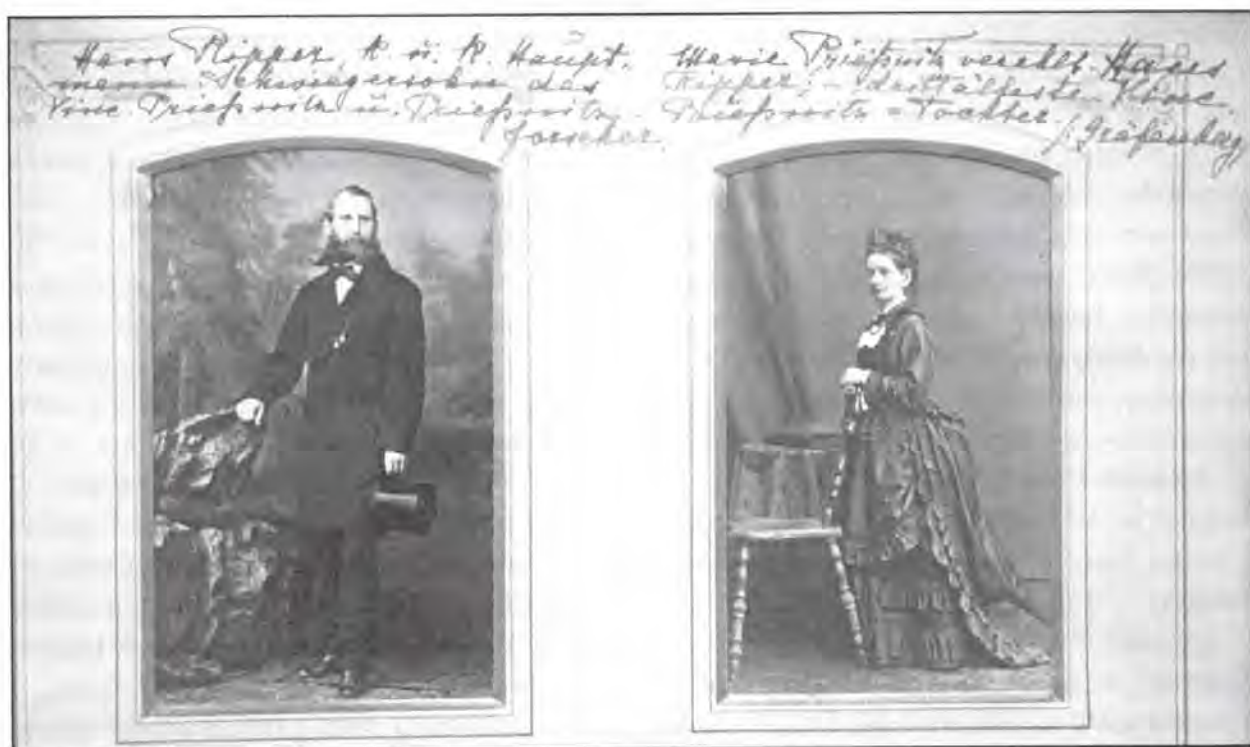 Hanns Ripper, K. u. K. Haupt-
mann. Schwiegersohn des
Vinc. Prießnitz u. Prießnitz-
forscher.
Marie Prießnitz verehlt. Hanns
Ripper; - drittälteste Vinc.
Prießnitz = Tochter
Gräfenberg